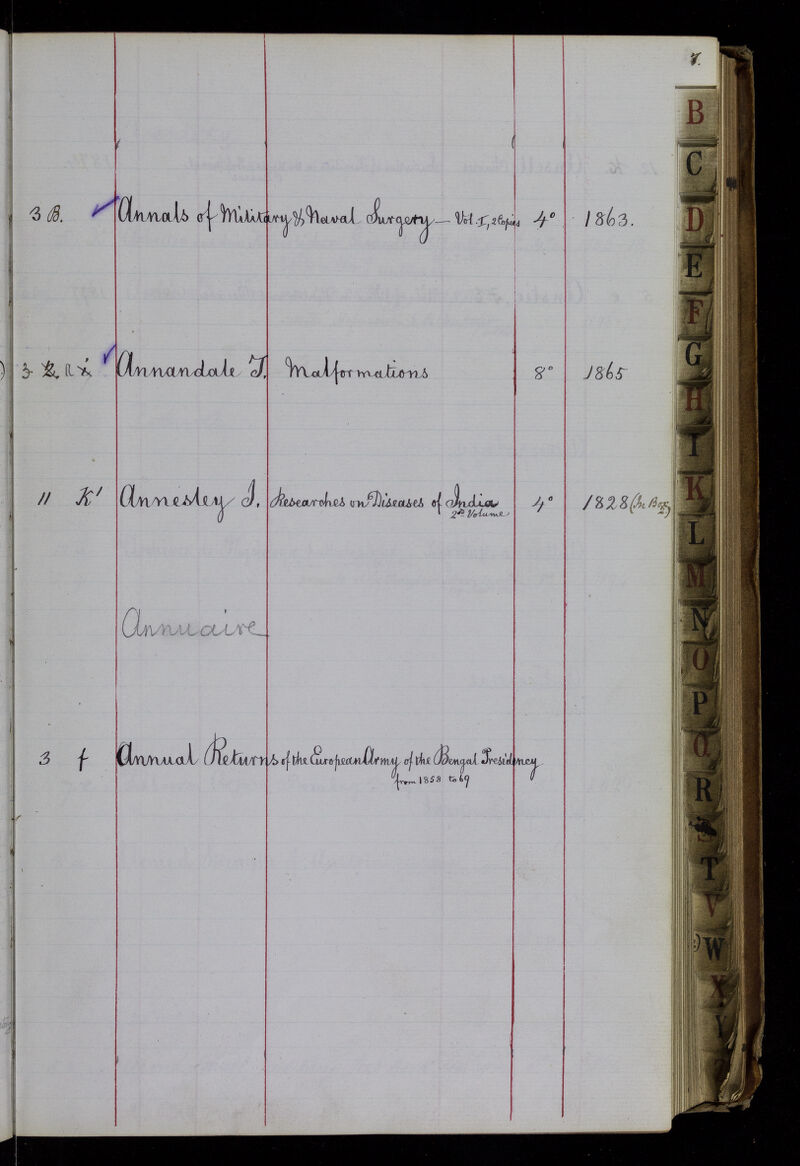 7.
3 B. Annals of Military & Naval Surgery — Vol. I, 2 Copies 4° 1863.
3 Annandale T. Malformations 8° 1865
11 K' Annesley J. Researches on Diseases of India 4° 1828 (In Box)
2nd Volume
Annuaire
3 f Annual Returns of the European Army of the Bengal Presidency
from 1858 to 69
B
C
D
E
F
G
H
I
K
L
M
N
O
P
Q
R
T
V
W
X
Y